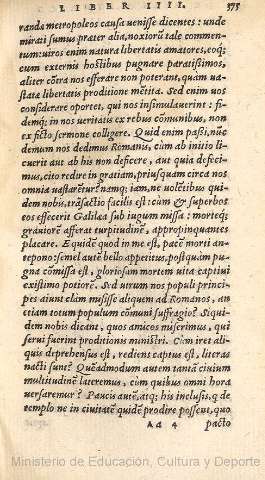 LIBER IIII. 375
randa metropoleos causa uenisse dicentes: unde
mirati sumus præter alia, noxiorũ tale commen-
tum: uiros enim natura libertatis amatores, eoq;
cum externis hostibus pugnare paratissimos,
aliter cõtra nos efferare non poterant, quàm ua-
stata libertatis proditione mẽtita. Sed enim uos
considerare oportet, qui nos insimulauerint: fi-
demq́; in nos ueritatis ex rebus cõmunibus, non
ex ficto sermone colligere. Quid enim passi, nũc
demum nos dedimus Romanis, cùm ab initio li-
cuerit aut ab his non deficere, aut quia defeci-
mus, citò redire in gratiam, priusquàm circa nos
omnia uastarẽtur? namq; iam, ne uolẽtibus qui-
dem nobis, trãsactio facilis est: cùm & superbos
eos effecerit Galilæa sub iugum missa: morteq́;
grauiorẽ afferat turpitudinẽ, appropinquantes
placare. Equidẽ quod in me est, pacẽ morti an-
tepono: semel autẽ bello appetitus, postquam pu-
gna cõmissa est, gloriosam mortem uita captiui
existimo potiorẽ. Sed utrum nos populi princi-
pes aiunt clàm misisse aliquem ad Romanos, an
etiam totum populum cõmuni suffragio? Siqui-
dem nobis dicant, quos amicos miserimus, qui
serui fuerint proditionis ministri. Cùm iret ali-
quis deprehensus est, rediens captus est, literas
nacti sunt? Quẽadmodum autem tantã ciuium
multitudinẽ lateremus, cùm quibus omni hora
uersaremur? Paucis autẽ, atq; his inclusis, q́; de
templo ne in ciuitatẽ quidẽ prodire possent, quo
Aa 4 pacto
Ministerio de Educación, Cultura y Deporte